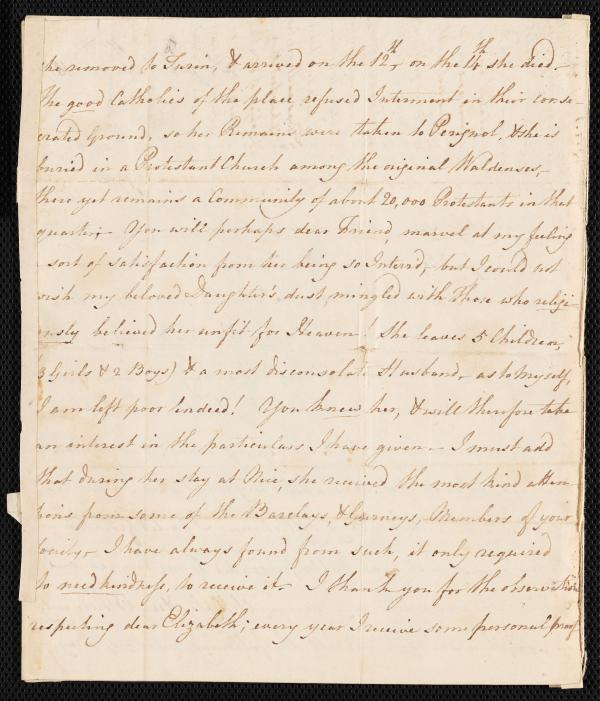 he removed to Turin, & arrived on the 12th, on the 14th she died.—
The good Catholics of the place refused Interment in their conse-
crated Ground, so her Remains were taken to Perignol, & she is
buried in a Protestant Church among the original Waldenses,—
there yet remains a Community of about 20,000 Protestants in that
quarter,— You will perhaps dear Friend, marvel at my feeling
sort of satisfaction from her being so Interr'd, but I could not
wish my beloved Daughter's dust mingled with those who religi-
ously believed her unfit for Heaven! She leaves 5 Children,
(3 Girls & 2 Boys) & a most disconsolate Husband, as to myself,
I am left poor indeed! You knew her, & will therefore take
an interest in the particulars I have given — I must add
that during her stay at Nice, she received the most kind atten-
tions from some of the Barclays, & Gurneys, Members of your
Society— I have always found from such, it only required
to need kindness, to receive it— I thank you for the observation
respecting dear Elizabeth; every year I receive some personal proof